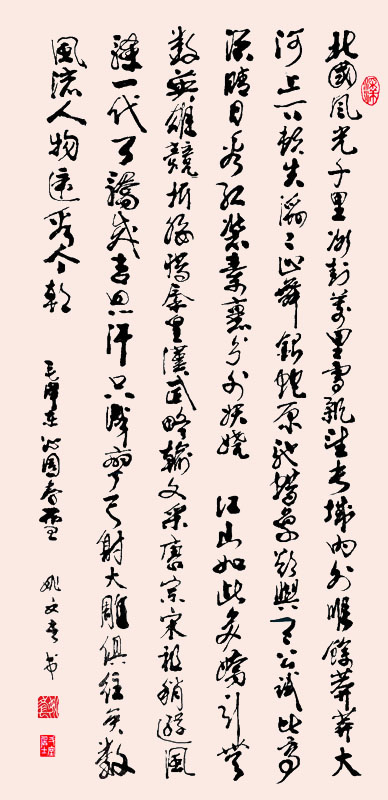 北國風光千里冰封萬里雪飄望長城內外唯餘莽莽大
河上下頓失滔々山舞銀蛇原馳蠟象欲與天公試比高
須晴日看紅裝素裹分外妖嬈 江山如此多嬌引無
數英雄競折腰惜秦皇漢武略輸文采唐宗宋祖稍遜風
騷一代天驕成吉思汗只識彎弓射大雕俱往矣數
風流人物還看今朝
毛澤東沁園春雪 姚文书